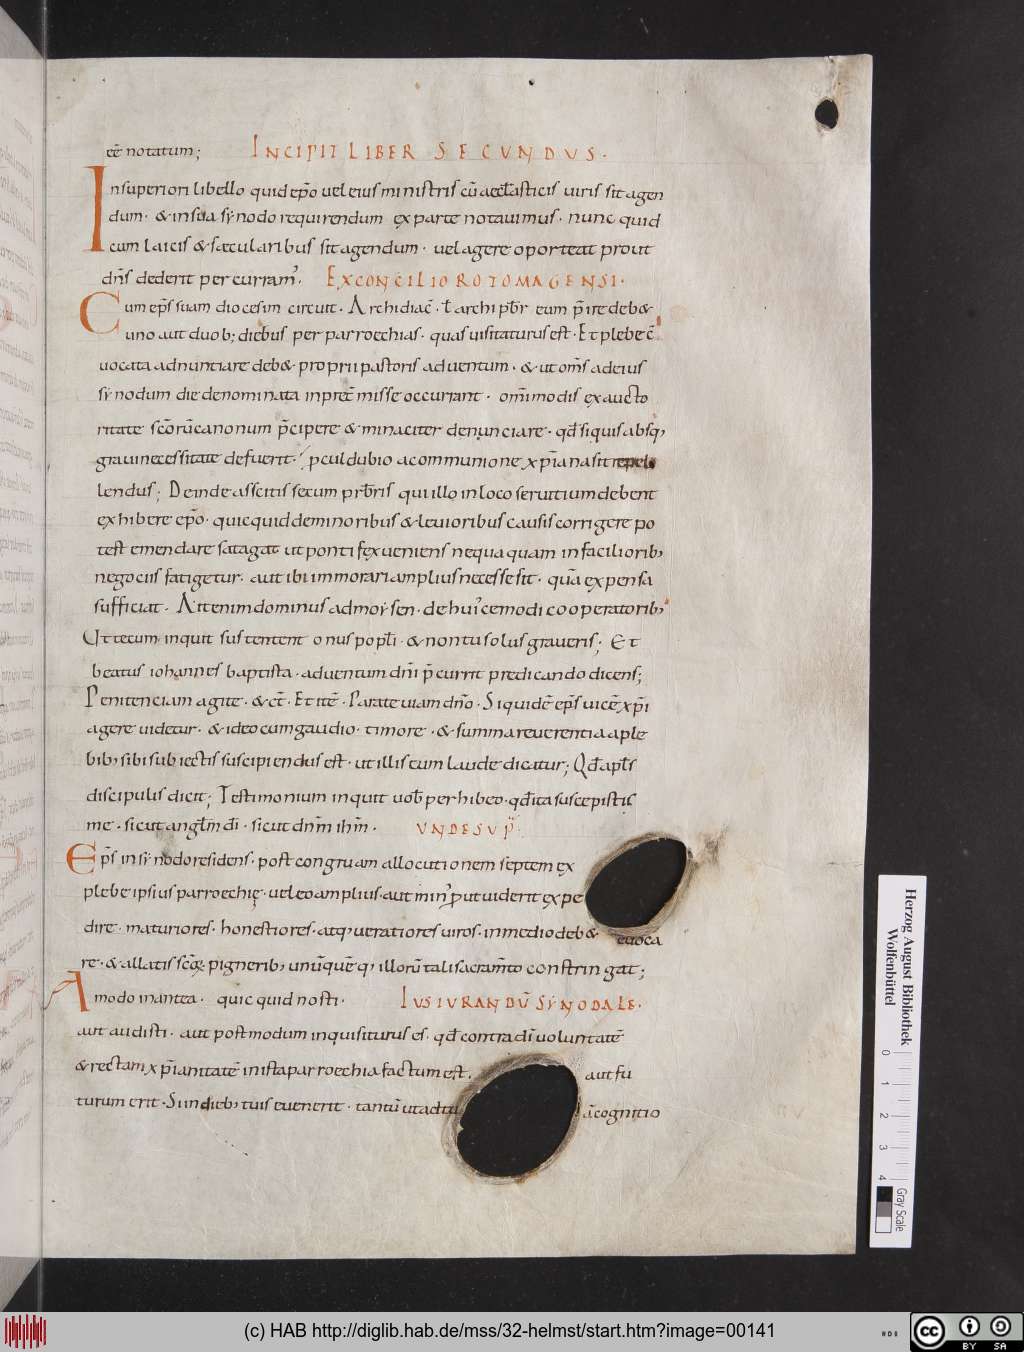 eē notatum; INCIPIT LIBER SECUNDUS.
In superiori libello quid ep̄o vel eius ministris cū aecłasticis viris sit agen
dum. & in sc̄a synodo requirendum ex parte notavimus. nunc quid
cum laicis & saecularibus sit agendum. vel agere oporteat prout
dn̄s dederit percurram. EX CONCILIO ROTOMAGENSI.
Cum ep̄s suam diocesim circuit. Archidiac̄. ł archipb̄r eum p̄ire deb&
uno aut duob; diebus per parroechias. quas visitaturus est. Et plebe c̄
vocata adnuntiare deb& proprii pastoris adventum. & ut om̄s ad eius
synodum die denominata inpret̄ misse occurrant. om̄imodis ex aucto
ritate sc̄orū canonum p̄cipere & minaciter denunciare. qđ si quis absq;
gravi necessitate defuerit. p cul dubio a communione xp̄iana sit repel
lendus; Deinde asscitis secum prb̄ris qui illo in loco servitium debent
exhibere ep̄o. quicquid de minoribus & levioribus causis corrigere po
test emendare satagat ut pontifex veniens nequaquam in facilioribȝ
negociis fatigetur. aut ibi immorari amplius necesse sit. quā expensa
sufficiat. Ait enim dominus ad moysen. de huicemodi cooperatoribȝ
Ut tecum inquit sustentent onus popłi. & non tu solus graveris; Et
beatus iohannes baptista. adventum dn̄i p̄currit predicando dicens;
Penitenciam agite. & ct̄. Et itē. Parate viam dn̄o. Si quidē ep̄s vicē xp̄i
agere videtur. & ideo cum gaudio. timore. & summa reverentia a ple
bibȝ sibi subiectis suscipiendus est. ut illis cum laude dicatur; Qđ apłs
discipulis dicit; Testimonium inquit vob̄ perhibeo. qđ ita suscepistis
me. sicut angłm dī. sicut dn̄m ih̄m. UNDE SUP̄.
Ep̄s in synodo residens. post congruam allocutionem septem ex
plebe ipsius parroechię. vel eo amplius. aut min' ꝓut viderit expe
dire. maturiores. honestiores. atqȝ veratiores viros. in medio deb& evoca
re. & allatis sc̄oꝝ pigneribȝ unūquēqȝ illorū tali sacram̄to constringat;
Amodo inantea. quicquid nosti. IUSIURANDŪ SYNODALE.
aut audisti. aut postmodum inquisiturus es. qđ contra dī voluntatē
& rectam xp̄ianitatē in ista parroechia factum est. aut fu
turum erit. Si in diebȝ tuis evenerit. tantū ut ad tuā cognitio
Herzog August Bibliothek
Wolfenbüttel
0 1 2 3 4
Gray Scale
(c) HAB http://diglib.hab.de/mss/32-helmst/start.htm?image=00141
cc BY SA